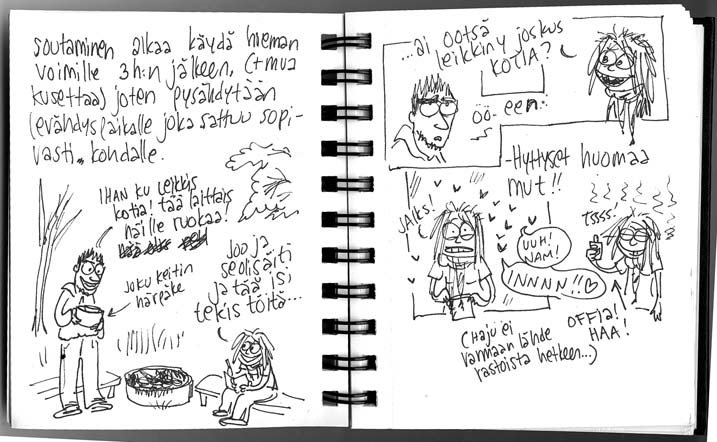 SOUTAMINEN ALKAA KÄYDÄ HIEMAN
VOIMILLE 3 h:n JÄLKEEN, (+MUA
KUSETTAA) JOTEN PYSÄHDYTÄÄN
(EVÄHDYSPAIKALLE JOKA SATTUU SOPI-
VASTI KOHDALLE.
IHAN KU LEIKKIS
KOTIA! TÄÄ LAITTAIS
NÄILLE RUOKAA!
JOKU KEITIN
HÄRPÄKE
JOO JA
SEOLISÄITI
JA TÄÄ ISI
TEKIS TÖITÄ...
...AI OOTSÄ
LEIKKINY JOSKUS
KOTIA?
ÖÖ-
EEN..
-HYTTYSET HUOMAA
MUT!!
JAIKS!
UUH!
NAM!
INNNN!!
TSSS.
OFFIA!
HAA!
(HAJU EI
VARMAAN LÄHDE
RASTOISTA HETKEEN...)